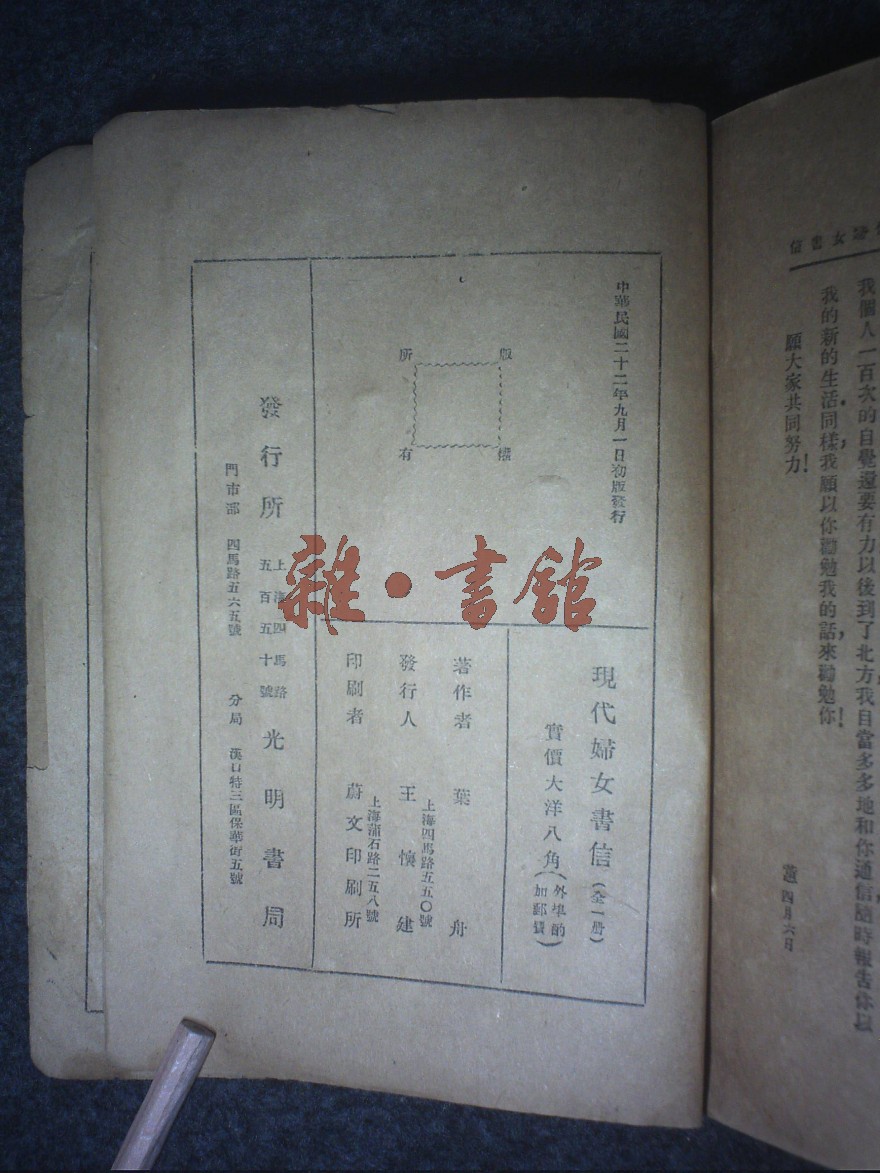 婦女書信
我個人一百次的自覺還要有力以後到了北方我自當多多地和你通信隨時報告你以
我的新的生活同樣，我願以你勸勉我的話，來勸勉你！
願大家共同努力！
四月六日
中華民國二十二年九月一日初版發行
版權
所有
現代婦女書信（全一册）
實價大洋八角（外埠酌加郵費）
著作者 葉舟
發行人 王懷建
上海四馬路五五〇號
印刷者 蔚文印刷所
上海蒲石路二五八號
發行所 上海四馬路五百五十號 光明書局
門市部 四馬路五六五號 分局 漢口特三區保華街五號
雜·書館